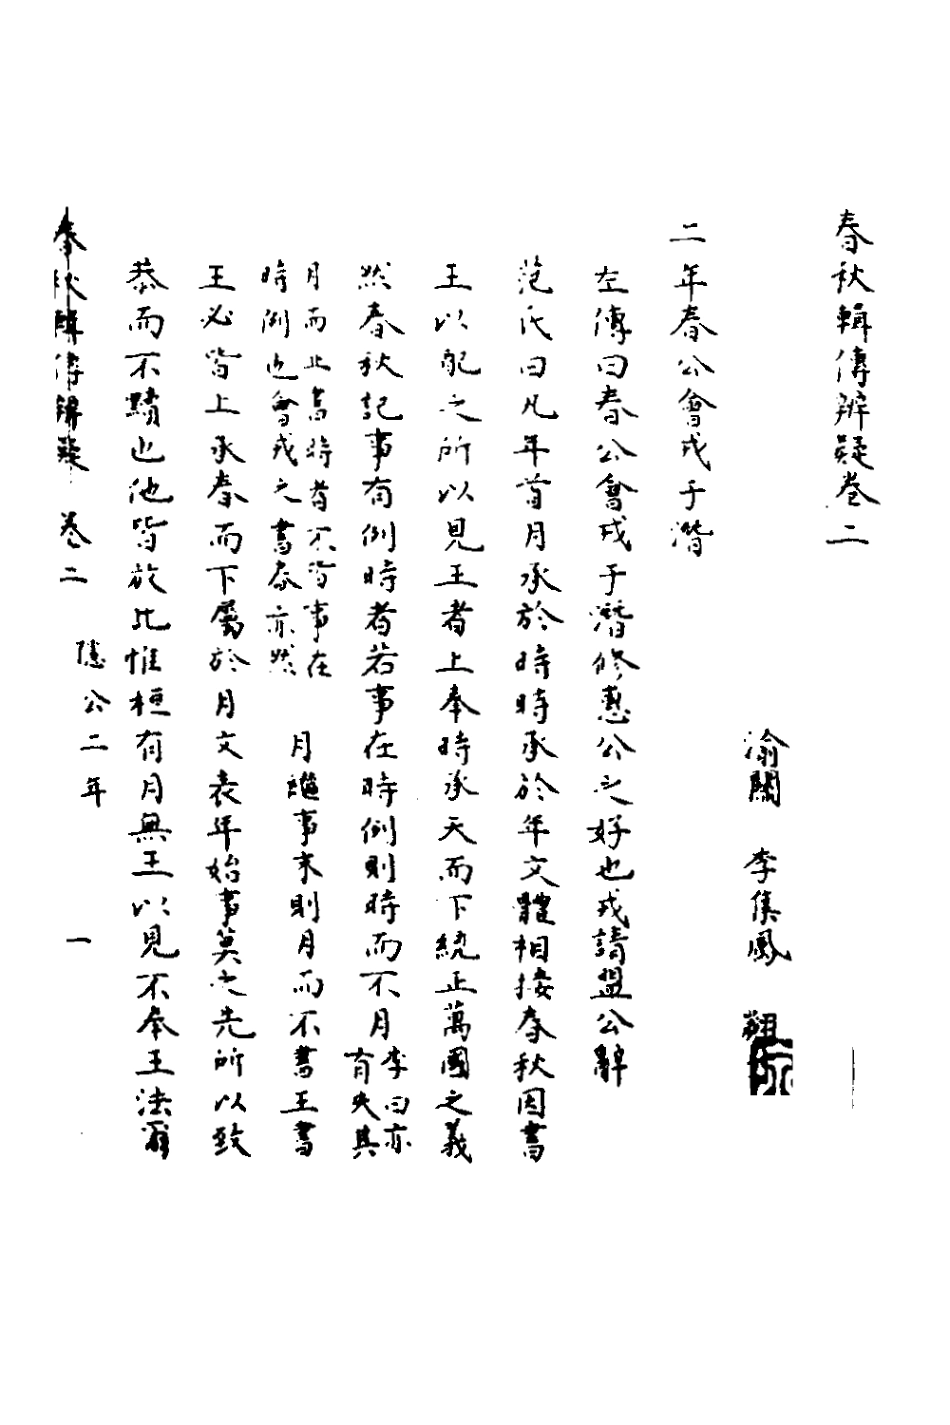 春秋輯傳辨疑卷二
渝關 李集鳳 翽
二年春公會戎于潛
左傳曰春公會戎于潛修惠公之好也戎請盟公辭
范氏曰凡年首月承於時時承於年文體相接春秋因書
王以配之所以見王者上奉時承天而下統正萬國之義
然春秋記事有例時者若事在時例則時而不月李曰亦有史其
月而止書時者不皆事在時例也會戎之書春亦然
月繼事末則月而不書王書
王必皆上承春而下屬於月文表年始事莫之先所以致
恭而不黷也他皆放此惟桓有月無王以見不奉王法爾
春秋輯傳辨疑 卷二 隱公二年 一